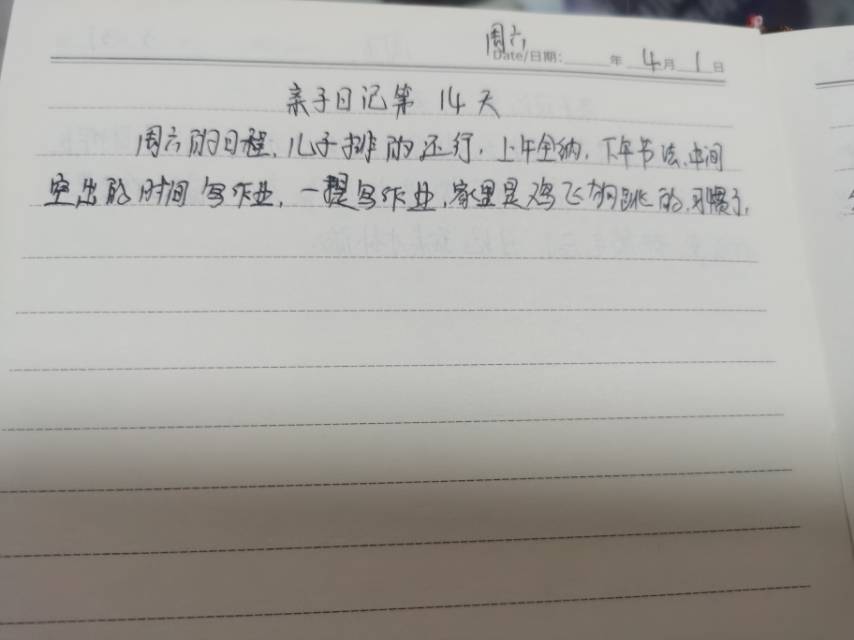 周六
Date/日期: 年 4月 1日
亲子日记第 14 天
周六的日程,儿子排的还行,上午全纳,下午书法,中间
空出的时间写作业,一提写作业,家里是鸡飞狗跳的,习惯了,